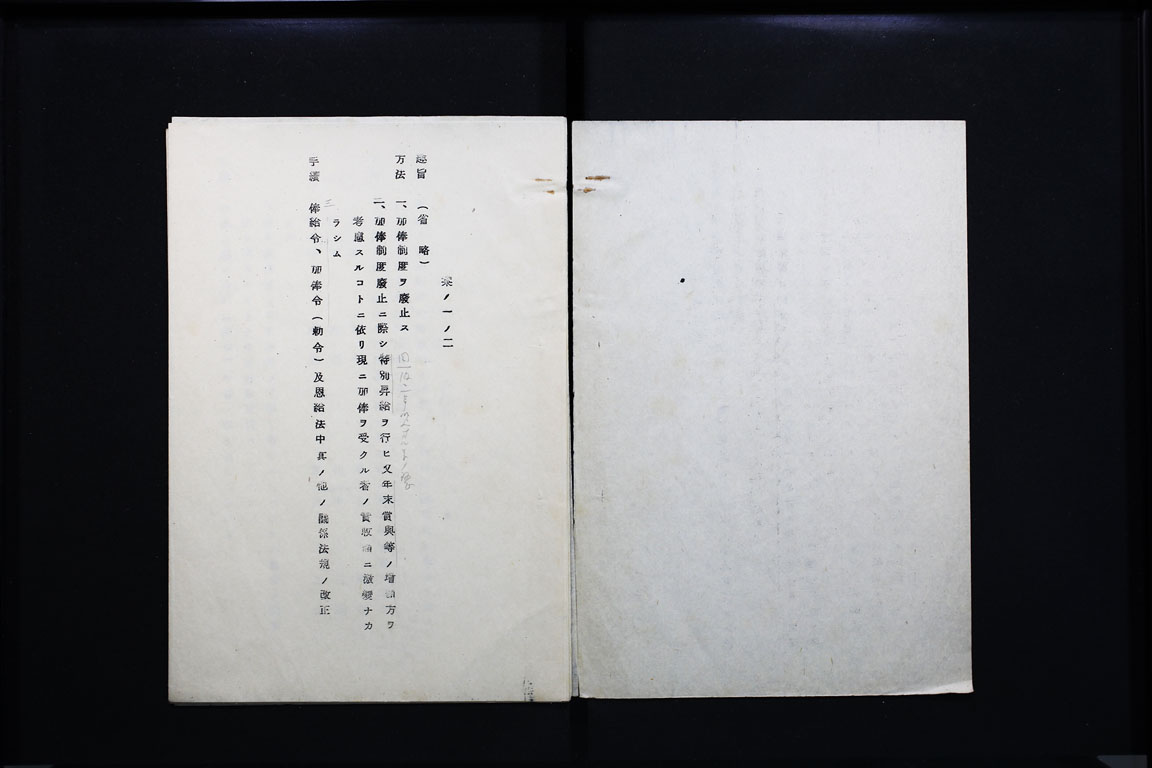 案ノ一ノ二
趣旨 (省略)
方法 一、加俸制度ヲ廢止ス
二、加俸制度廢止ニ際シ特別昇給ヲ行ヒ又年末賞與等ノ增額方ヲ
考慮スルコトニ依リ現ニ加俸ヲ受クル者ノ實收額ニ激變ナカ
ラシム
三
手續 俸給令、加俸令(勅令)及恩給法中其ノ他ノ關係法規ノ改正